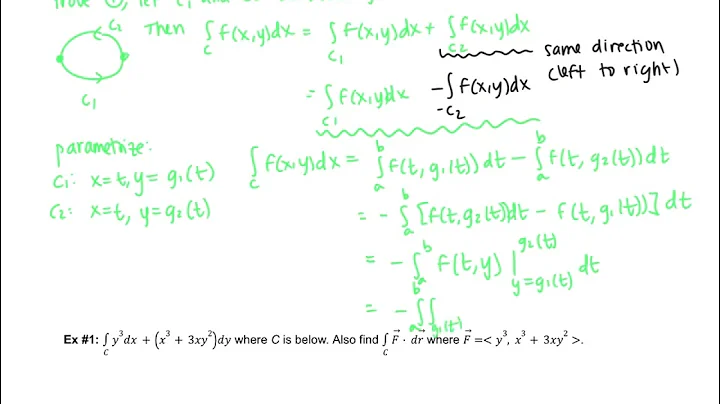 prove ①, let C₁ and
C₂ Then ∫_C f(x,y)dx = ∫_C₁ f(x,y)dx + ∫_C₂ f(x,y)dx
same direction
(left to right)
C₁ = ∫_C₁ f(x,y)dx - ∫_-C₂ f(x,y)dx
parametrize:
C₁: x=t, y= g₁(t)
C₂: x=t, y=g₂(t)
∫_C f(x,y)dx = ∫_a^b f(t, g₁(t)) dt - ∫_a^b f(t, g₂(t)) dt
= - ∫_a^b [f(t,g₂(t))dt - f(t, g₁(t))] dt
= - ∫_a^b f(t,y) |_{y=g₁(t)}^{g₂(t)} dt
= - ∫_a^b ∫_{g₁(t)}
Ex #1: ∫_C y³dx + (x³ + 3xy²)dy where C is below. Also find ∫_C F⃗ · dr⃗ where F⃗ =< y³, x³ + 3xy² >.